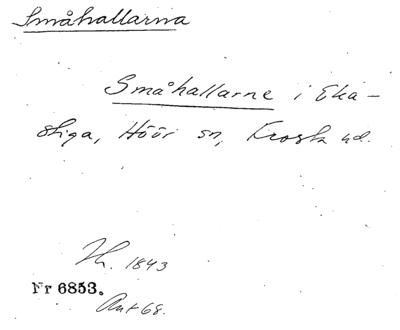 Småhallarna
Småhallarne i Eka-
stiga, Höör sn, Frosta hd.
Th. 1843
Nr 6853.
Ant 68.